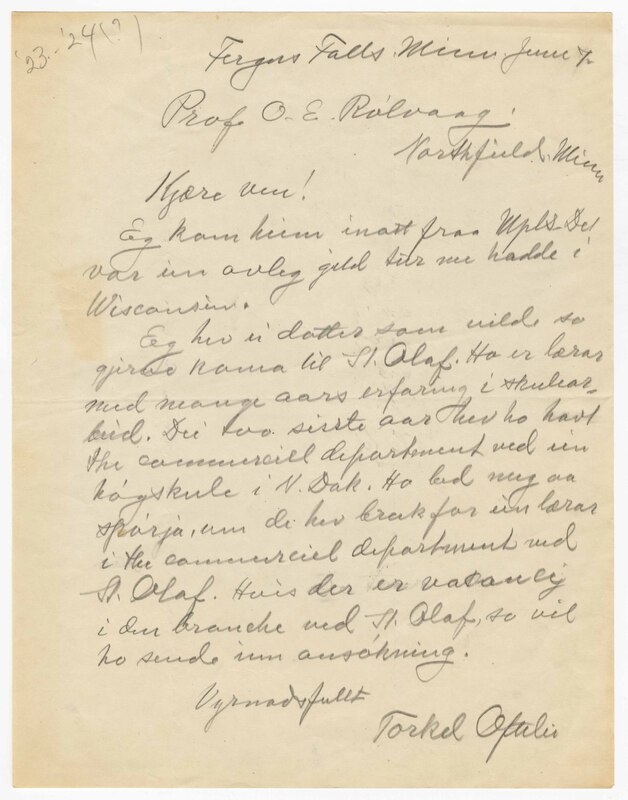 '23-'24(?)
Fergus Falls. Minn June 7-
Prof O-E. Rölvaag.
Northfield, Minn
Kjære ven!
Eg kom heim inatt fraa Mpls- Det
var ein ovleg gild tur me hadde i
Wisconsin.
Eg hev ei dotter som vilde so
gjerne koma til St. Olaf. Ho er lærar
med mange aars erfaring i skulear-
beid. Dei tvo sisste aar hev ho havt
the commerciel department ved ein
högskule i N. Dak. Ho bed meg aa
spörja, um de hev bruk for ein lærar
i the commerciel department ved
St. Olaf. Hvis der er vacancy
i den branche ved St. Olaf, so vil
ho sende inn ansökning.
Vyrnadsfullt
Torkel Oftelie